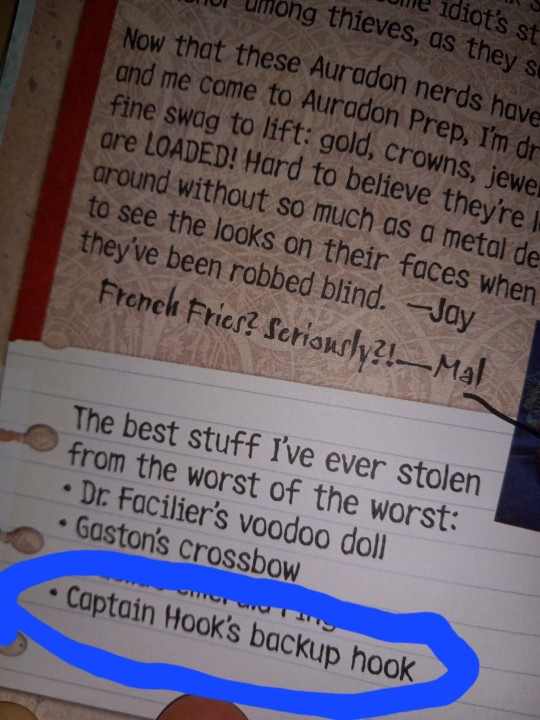 idiot's st
among thieves, as they s
Now that these Auradon nerds have
and me come to Auradon Prep, I'm dr
fine swag to lift: gold, crowns, jewe
are LOADED! Hard to believe they're l
around without so much as a metal de
to see the looks on their faces when
they've been robbed blind. —Jay
French Fries? Seriously?!—Mal
The best stuff I've ever stolen
from the worst of the worst:
• Dr. Facilier's voodoo doll
• Gaston's crossbow
• Captain Hook's backup hook